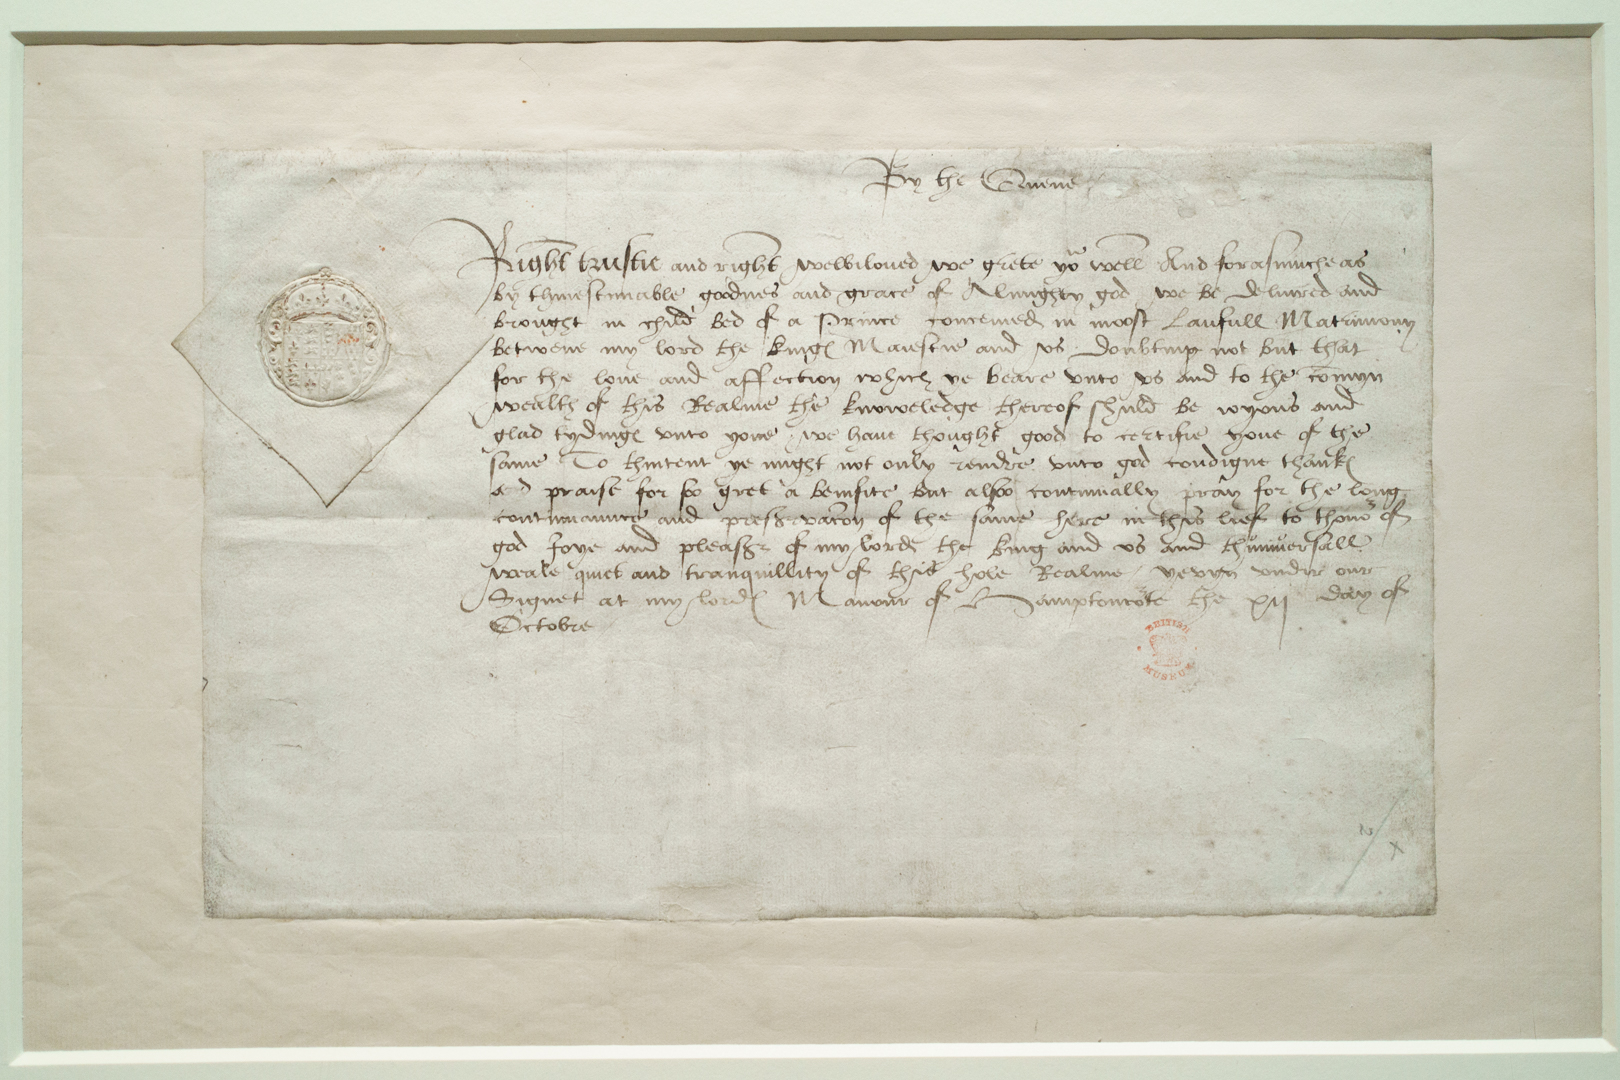 By the Quene
Right trustie and right welbiloued we grete you well And forasmuche as
by thinestimable goodnes and grace of Almighty god we be deliured and
brought in child bed of a Prince conceiued in moost Laufull Matrimony
betwene my lord the kinges Maiestie and vs Doubtinge not but that
for the loue and affection which ye beare vnto vs and to the comyn
wealth of this Realme the knowlege thereof shuld be ioyous and
glad tydinges vnto youe we haue thought good to certifie youe of the
same To thintent ye might not only rendre vnto god condigne thankes
and praise for soo gret a benifite but alsoo continually pray for the long
continuaunce and preseruacon of the same here in this lief to thono of
god Joye and pleasr of my lorde the king and vs and thuniuersall
weale quiet and tranquillity of this hole Realme yevyn vndir our
Signet at my lordes Manour of Hamptoncote the xij day of
Octobre
BRITISH
MUSEUM